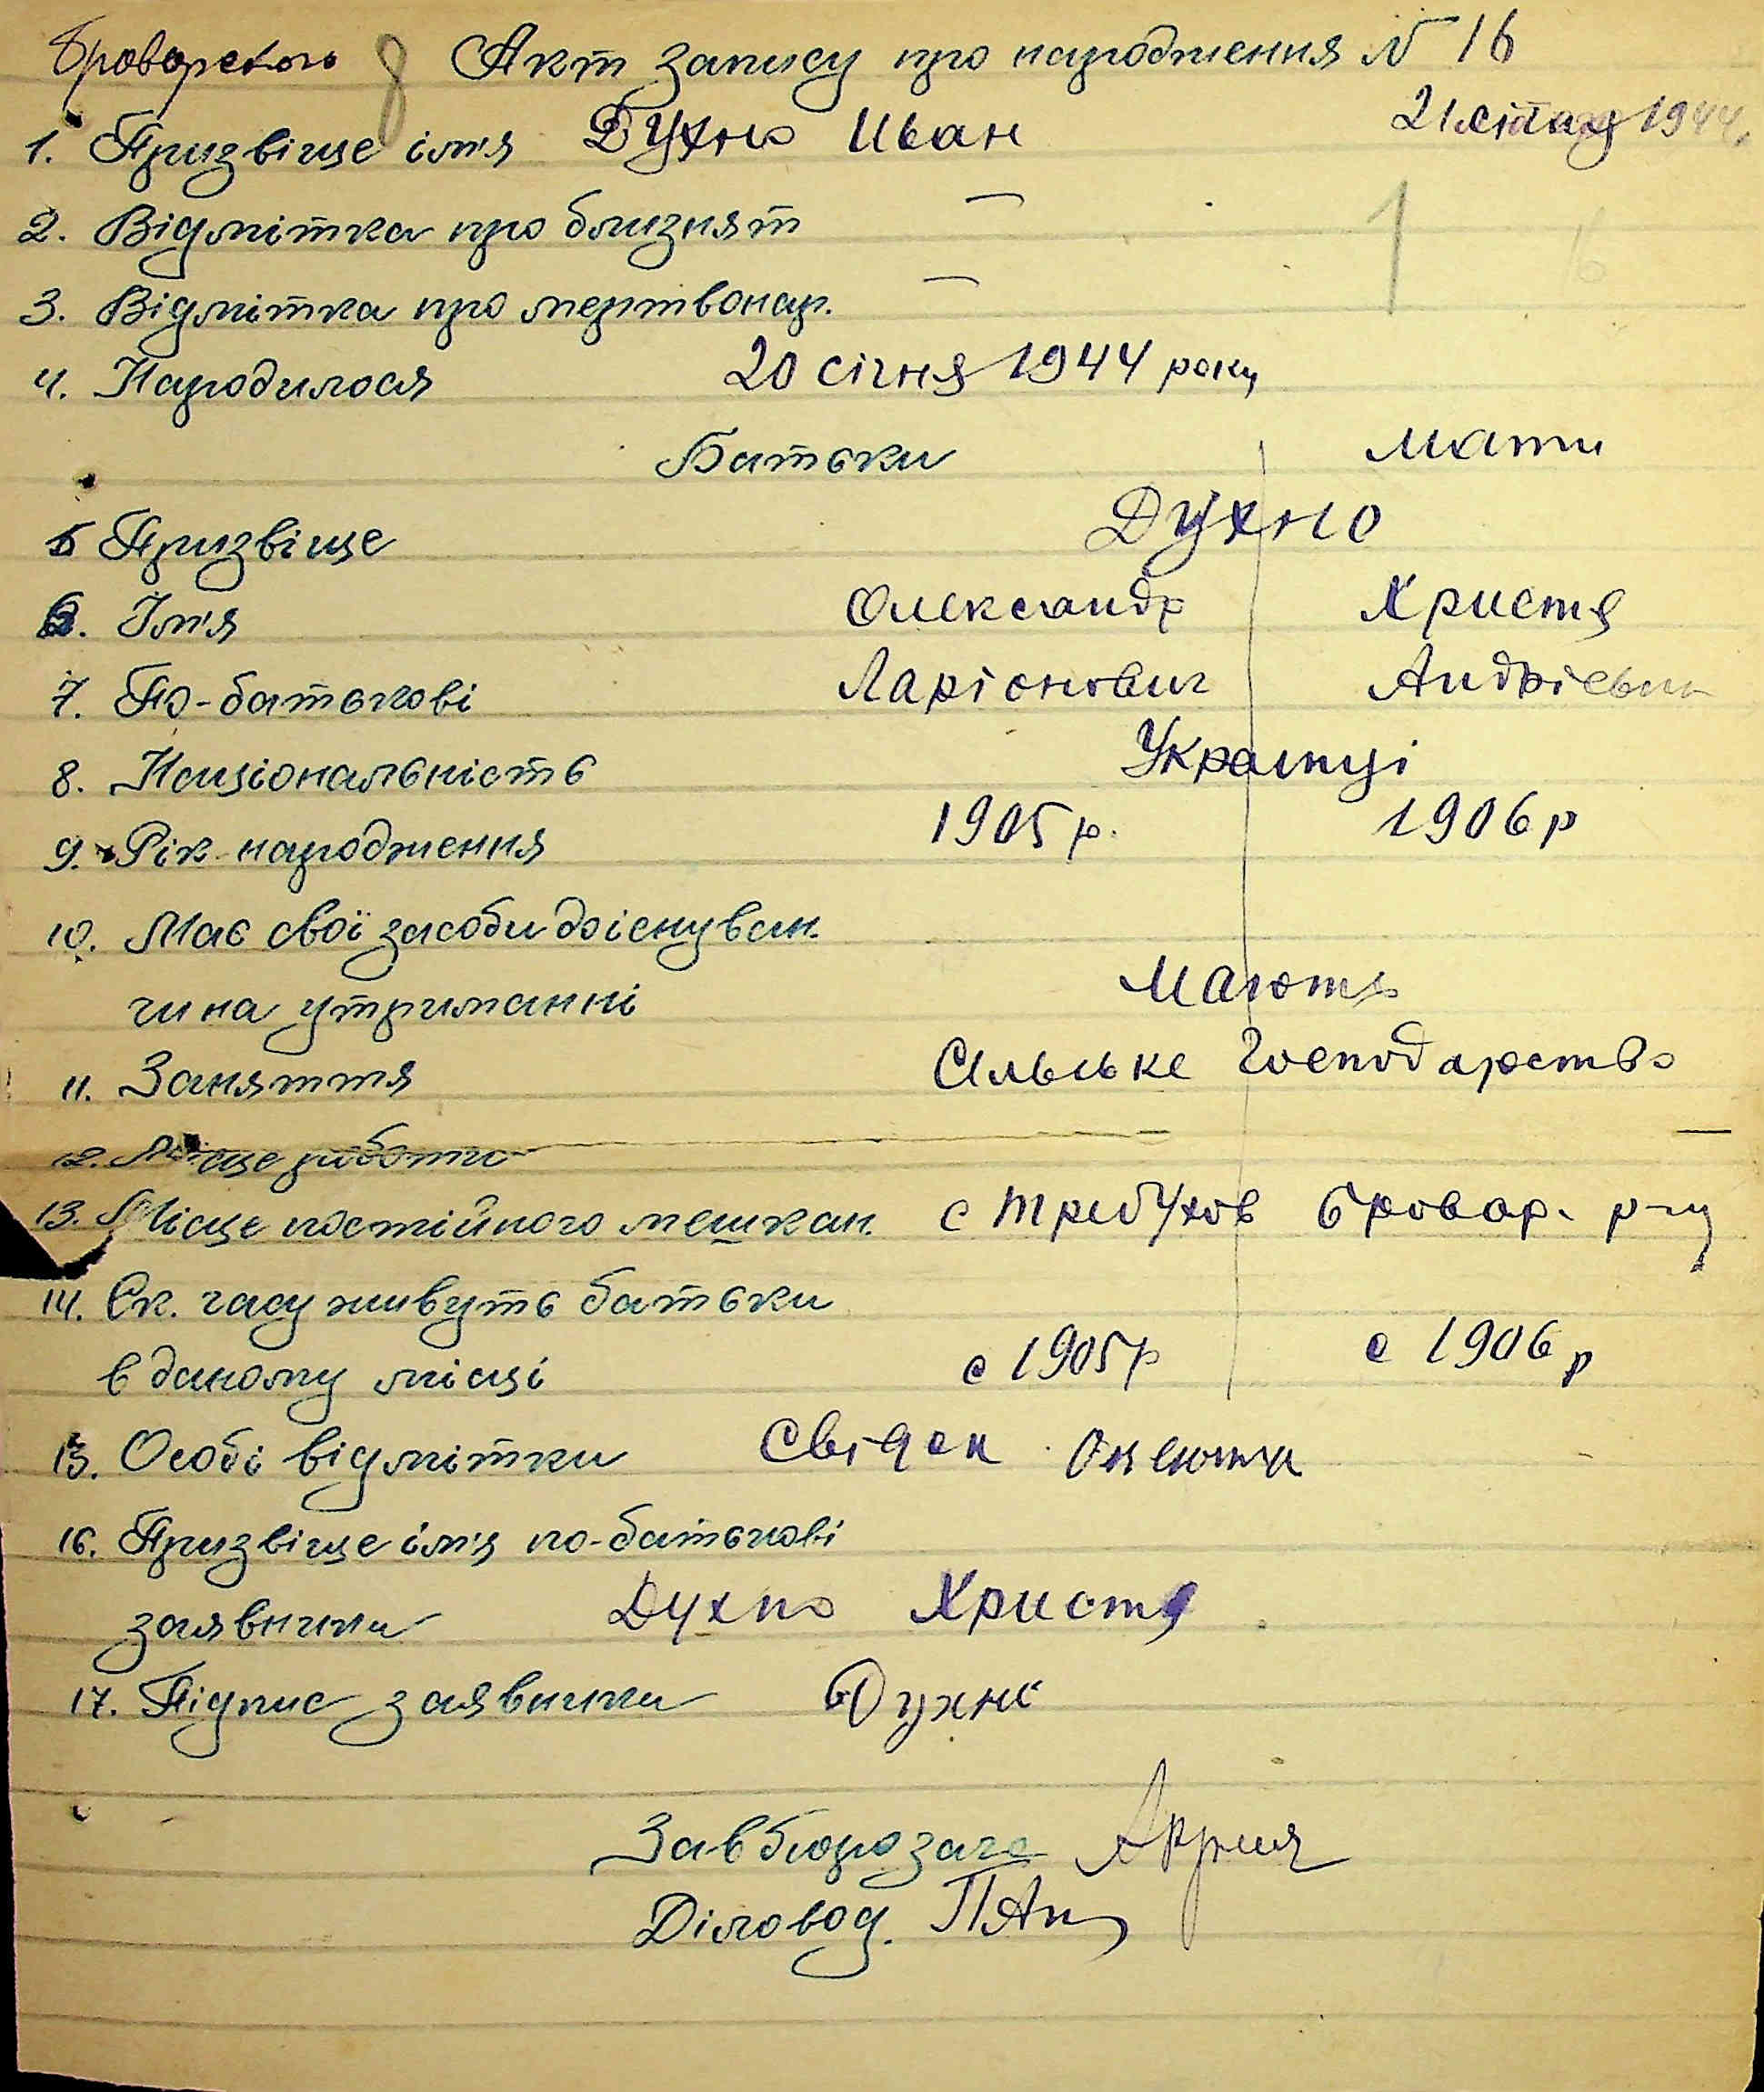 Броварського 8 Акт запису про народження N 16
21 лютого 1944
1. Призвіще ім'я Духно Иван
2. Відмітка про близнят —
1 16
3. Відмітка про мертвонар. —
4. Народилося 20 січня 1944 року
Батьки Мати
5 Призвіще Духно
6. Ім'я Олександр Христя
7. По-батькові Ларіонович Андріевна
8. Національність Украінці
9. Рік народження 1905 р. 1906 р
10. Має свої засоби до існуван.
чи на утриманні Мають
11. Заняття Сільське Господарство
12. Місце работи — —
13. Місце постійного мешкан. с Требухов Бровар. р-ну
14. Ск. часу живуть батьки
в даному місці с 1905 р с 1906 р
15. Особі відмітки Свідок
16. Призвіще ім'я по-батькові
заявника Духно Христя
17. Підпис заявника Духно
Зав бюро загс
Діловод.